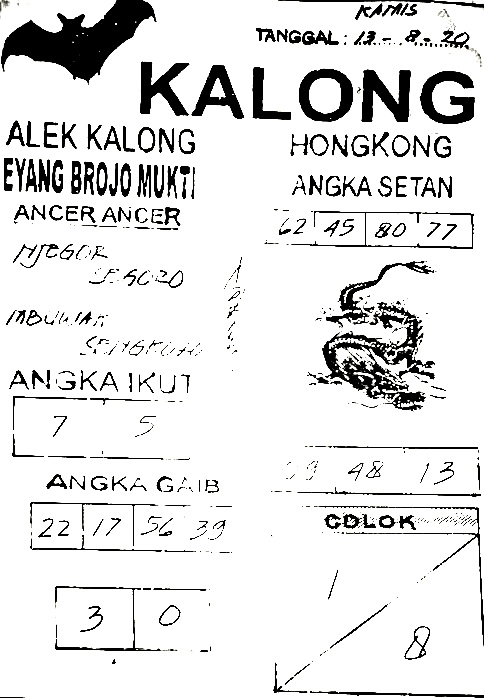 KAMIS
TANGGAL : 13 - 8 - 20
KALONG
ALEK KALONG
EYANG BROJO MUKTI
ANCER ANCER
NJEGOR
SEGORO
ANGKA IKUT
7 5
ANGKA GAIB
22 17 56 39
3 0
HONGKONG
ANGKA SETAN
62 45 80 77
48 13
COLOK
1
8